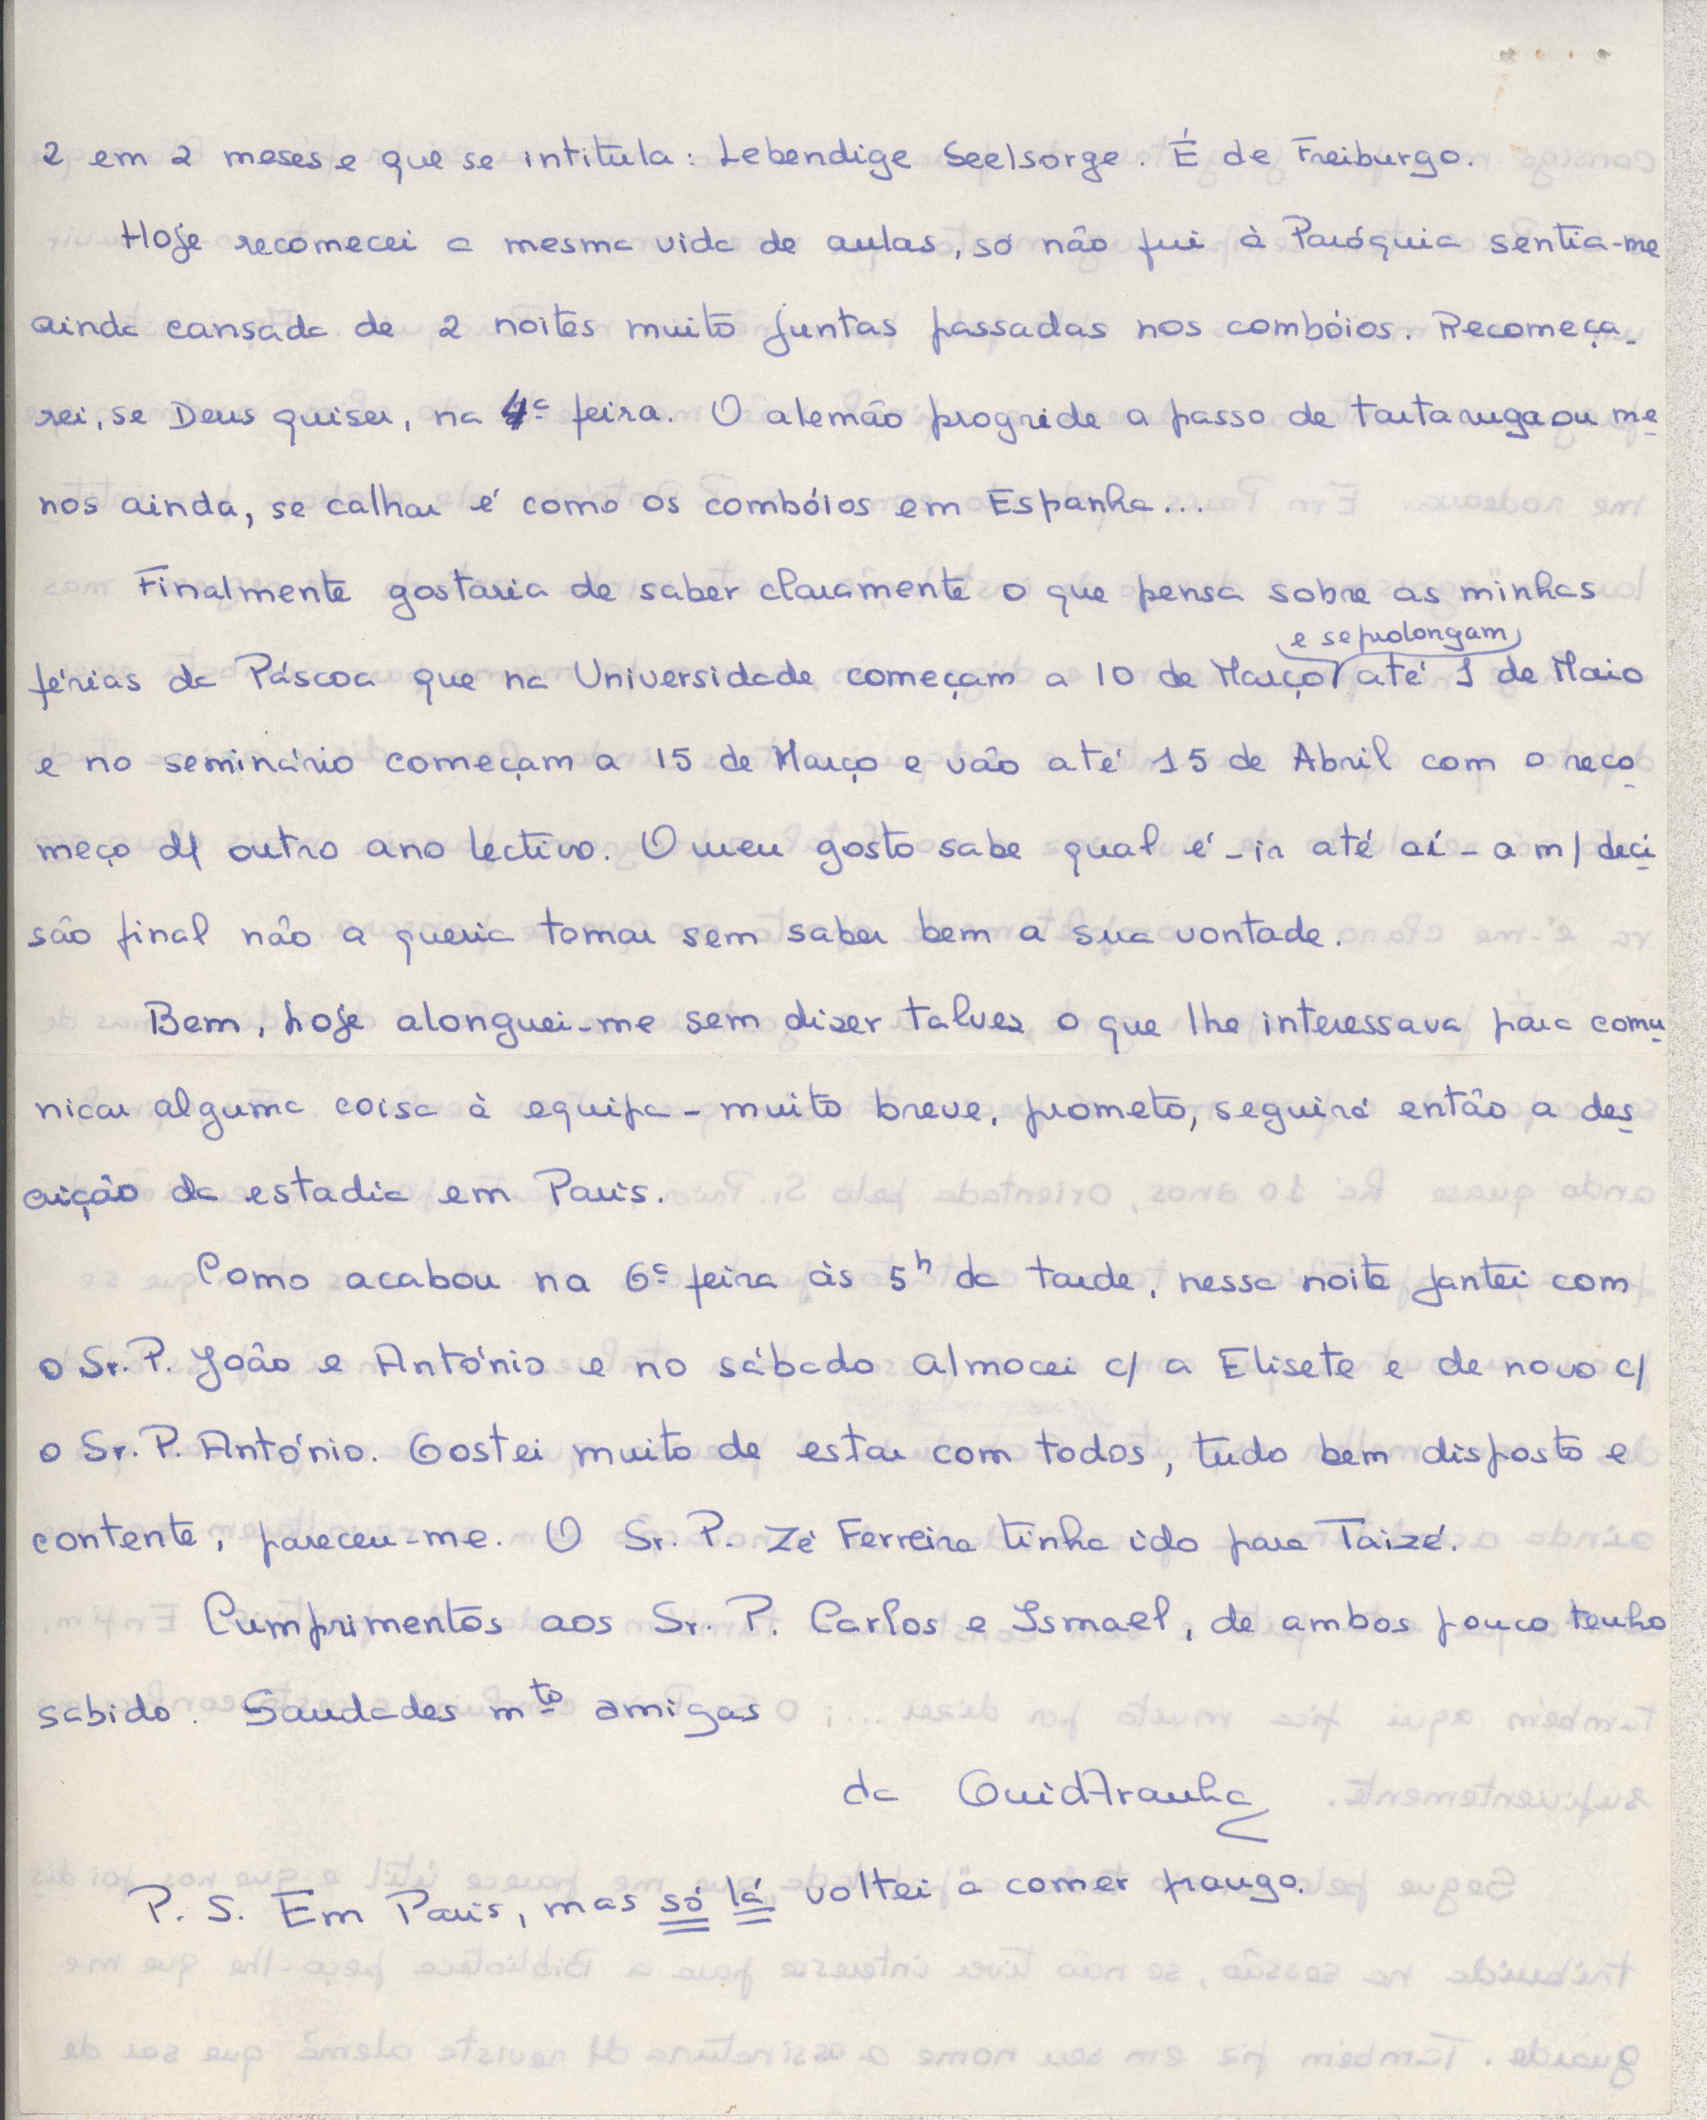 2 em 2 meses e que se intitula: Lebendige Seelsorge. É de Freiburgo.
Hoje recomecei a mesma vida de aulas, só não fui à Paróquia sentia-me
ainda cansada de 2 noites muito juntas passadas nos combóios. Recomeça-
rei, se Deus quiser, na 4ª feira. O alemão progride a passo de tartaruga ou me
nos ainda, se calhar é como os combóios em Espanha...
Finalmente gostaria de saber claramente o que pensa sobre as minhas
e se prolongam
férias da Páscoa que na Universidade começam a 10 de Março até 1 de Maio
e no seminário começam a 15 de Março e vão até 15 de Abril com o reco
meço d/ outro ano lectivo. O meu gosto sabe qual é - ir até aí - a m/ deci
são final não a queria tomar sem saber bem a sua vontade.
Bem, hoje alonguei-me sem dizer talvez o que lhe interessava para comu
nicar alguma coisa à equipa - muito breve, prometo, seguirá então a des
crição da estadia em Paris.
Como acabou na 6ª feira às 5h da tarde, nessa noite jantei com
o Sr. P. João e António e no sábado almocei c/ a Elisete e de novo c/
o Sr. P. António. Gostei muito de estar com todos, tudo bem disposto e
contente, pareceu-me. O Sr. P. Zé Ferreira tinha ido para Taizé.
Cumprimentos aos Sr. P. Carlos e Ismael, de ambos pouco tenho
sabido. Saudades mto amigas
da GuidAranha
P. S. Em Paris, mas só lá voltei a comer frango.